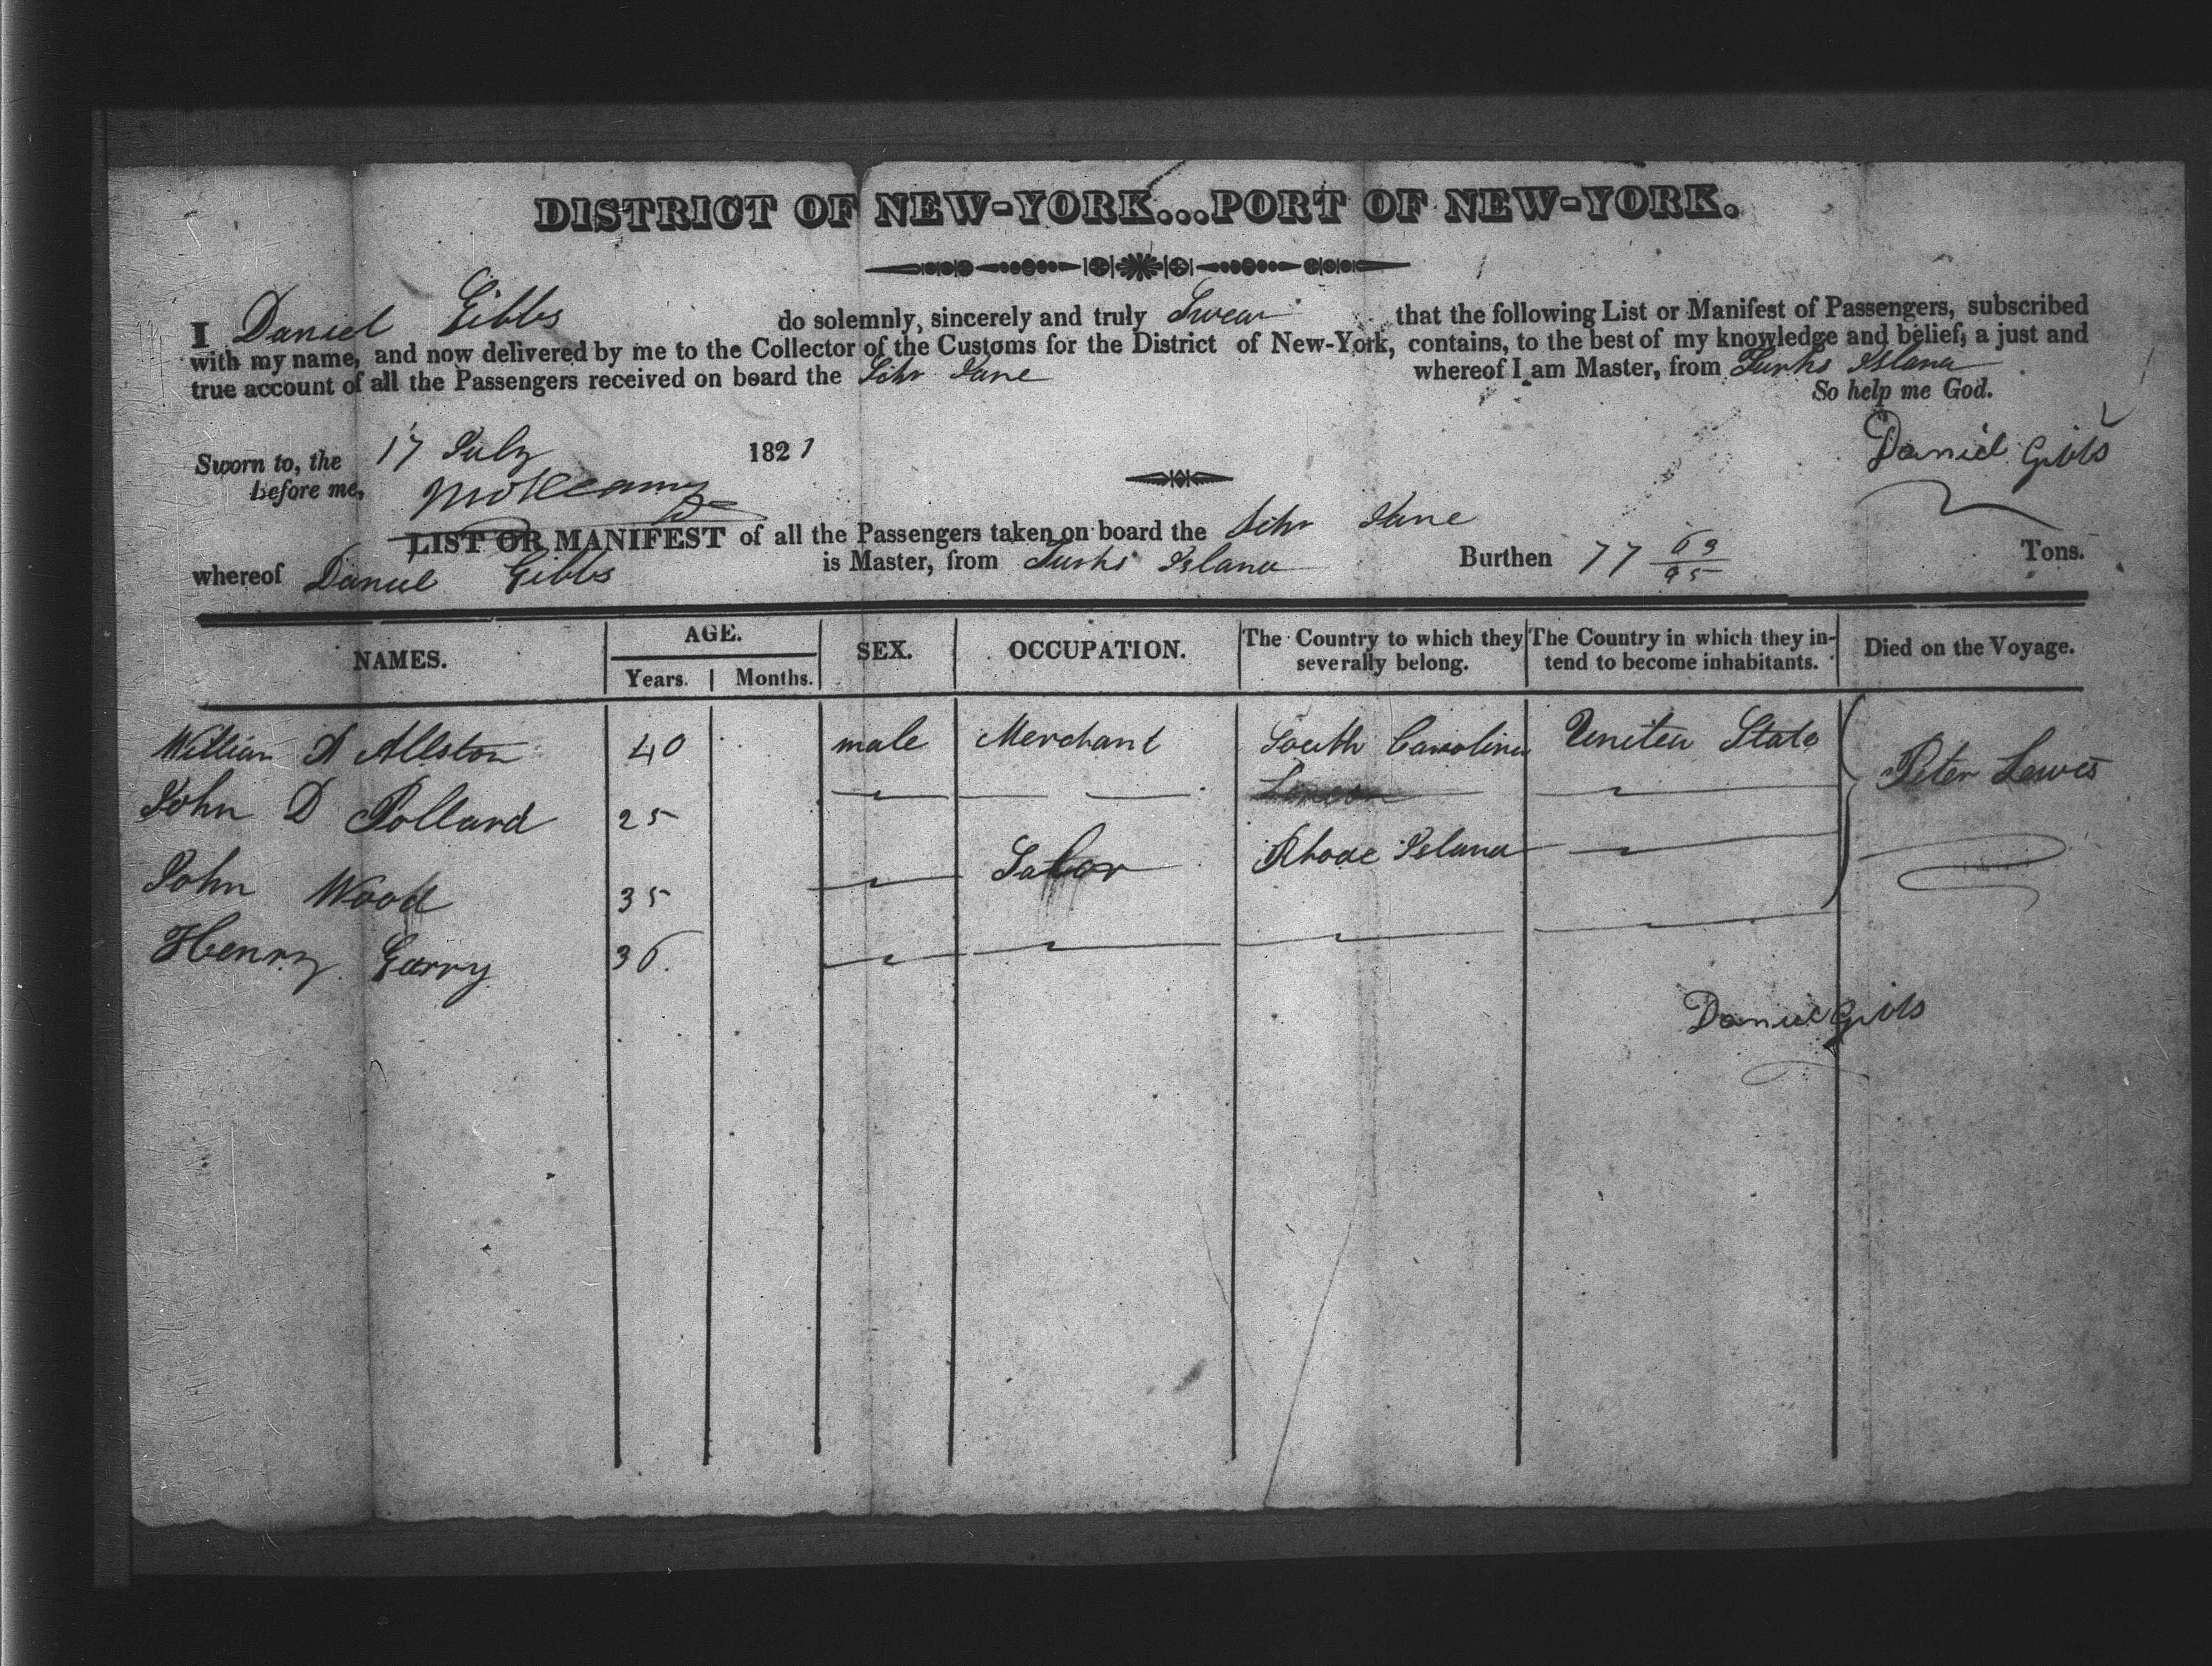 DISTRICT OF NEW-YORK...PORT OF NEW-YORK.
I Daniel Gibbs do solemnly, sincerely and truly Swear that the following List or Manifest of Passengers, subscribed
with my name, and now delivered by me to the Collector of the Customs for the District of New-York, contains, to the best of my knowledge and belief, a just and
true account of all the Passengers received on board the Schr Jane whereof I am Master, from Turks Island
So help me God.
Sworn to, the 17 July 1821 Daniel Gibbs
before me,
LIST OR MANIFEST of all the Passengers taken on board the Schr Jane
whereof Daniel Gibbs is Master, from Turks Island Burthen 77 63/95 Tons.
NAMES. AGE. SEX. OCCUPATION. The Country to which they severally belong. The Country in which they intend to become inhabitants. Died on the Voyage.
Years. Months.
William A Allston 40 male Merchant South Carolina United State Peter Lewis
John D Pollard 25
John Wood 35 Sailor Rhode Island
Henry Garry 36
Daniel Gibbs